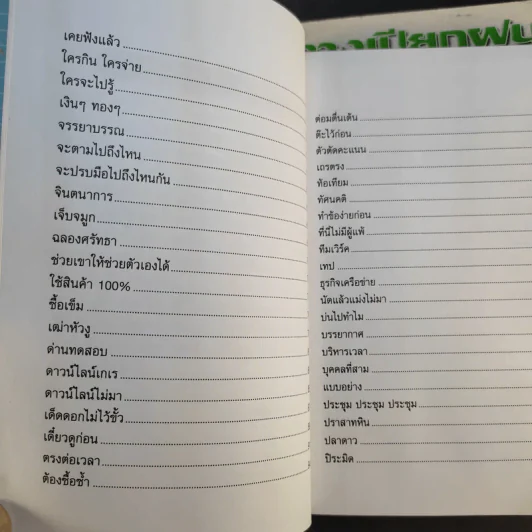 เคยฟังแล้ว
ใครกิน ใครจ่าย
ใครจะไปรู้
เงินๆ ทองๆ
จรรยาบรรณ
จะตามไปถึงไหน
จะปรบมือไปถึงไหนกัน
จินตนาการ
เจ็บจมูก
ฉลองศรัทธา
ช่วยเขาให้ช่วยตัวเองได้
ใช้สินค้า 100%
ซื้อเข็ม
เฒ่าหัวงู
ด่านทดสอบ
ดาวน์ไลน์เกเร
ดาวน์ไลน์ไม่มา
เด็ดดอกไม่ไว้ขั้ว
เดี๋ยวดูก่อน
ตรงต่อเวลา
ต้องซื้อซ้ำ
ต่อมตื่นเต้น
ตีะไว้ก่อน
ตัวตัดคะแนน
เถรตรง
ท้อเทียม
ทัศนคติ
ทำข้อง่ายก่อน
ที่นี่ไม่มีผู้แพ้
ทีมเวิร์ค
เทป
ธุรกิจเครือข่าย
นัดแล้วแม่งไม่มา
บ่นไปทำไม
บรรยากาศ
บริหารเวลา
บุคคลที่สาม
แบบอย่าง
ประชุม ประชุม ประชุม
ปราสาทหิน
ปลาดาว
ปิระมิด